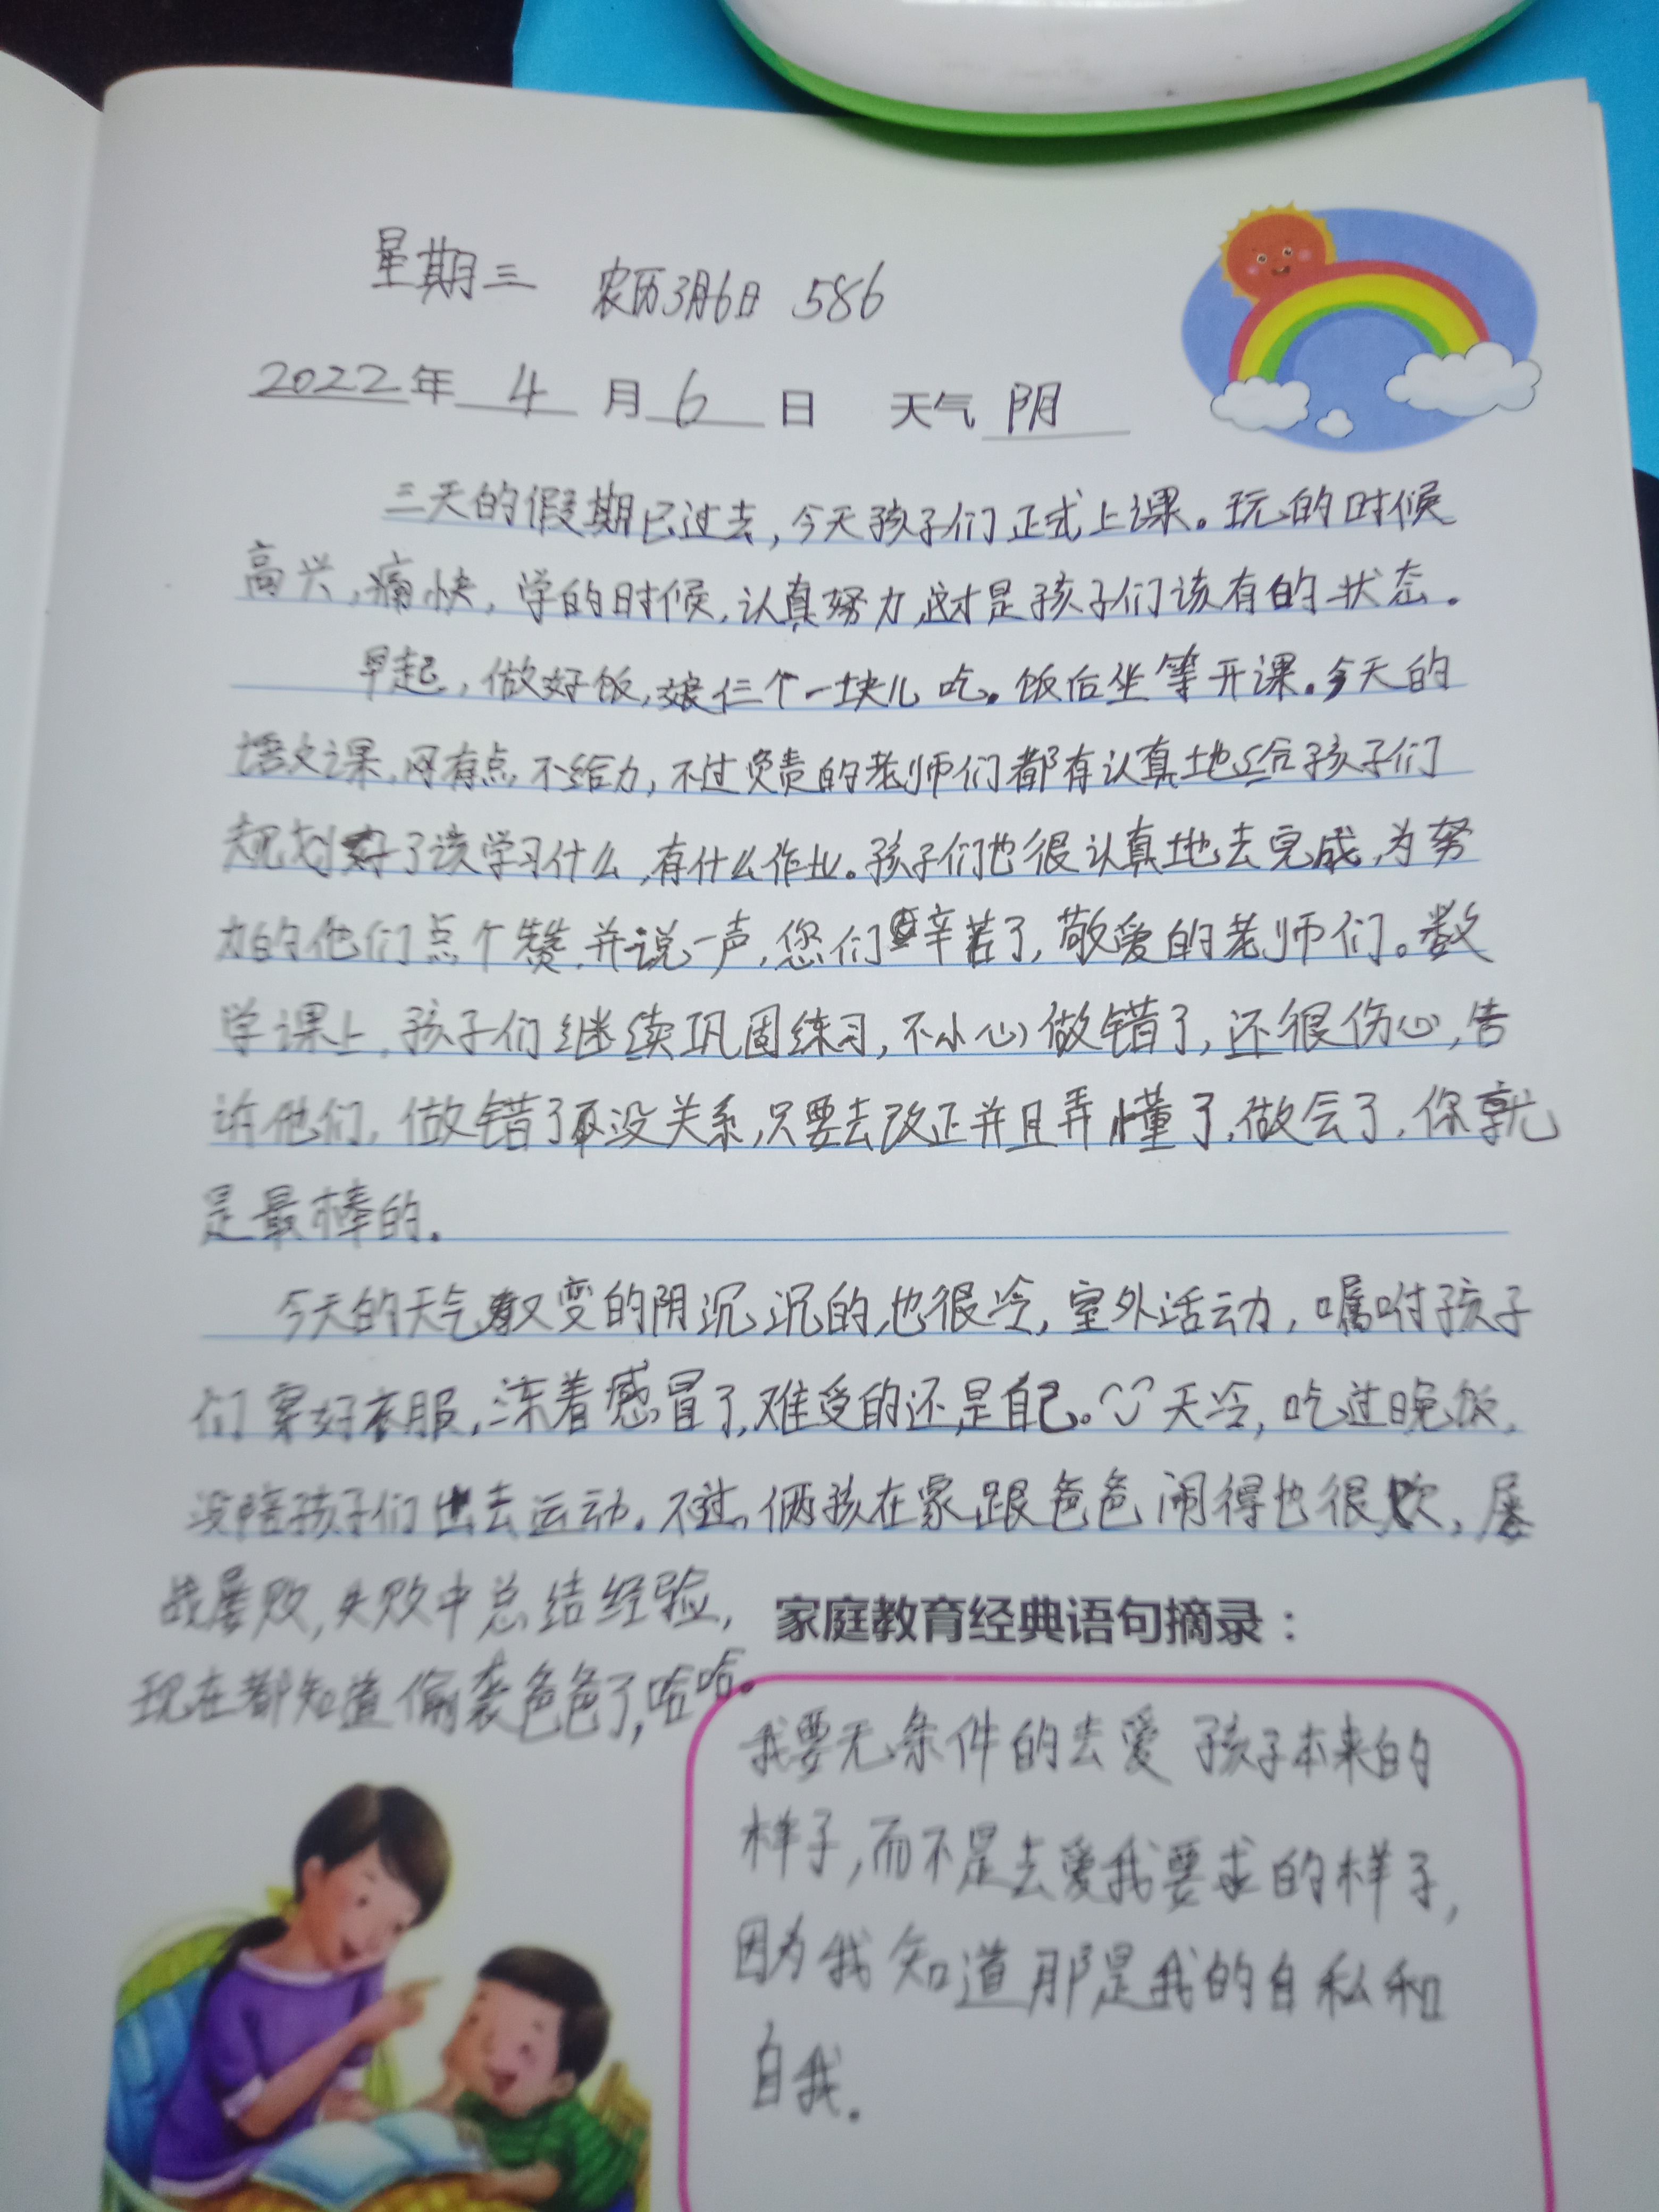 星期三 农历3月6日 586
2022年 4 月 6 日 天气 阴
三天的假期已过去,今天孩子们正式上课。玩的时候
高兴,痛快,学的时候,认真努力,这才是孩子们该有的状态。
早起,做好饭,娘仨个一块儿吃。饭后坐等开课。今天的
语文课,网有点不给力,不过负责的老师们都有认真地给孩子们
规划好了该学习什么,有什么作业。孩子们也很认真地去完成,为努
力的他们点个赞,并说一声,您们辛苦了,敬爱的老师们。数
学课上,孩子们继续巩固练习,不小心做错了,还很伤心,告
诉他们,做错了没关系,只要去改正并且弄懂了,做会了,你就
是最棒的。
今天的天气又变的阴沉沉的,也很冷,室外活动,嘱咐孩子
们穿好衣服,冻着感冒了,难受的还是自己。天冷,吃过晚饭,
没陪孩子们出去运动。不过,俩孩在家跟爸爸闹得也很欢,屡
战屡败,失败中总结经验,
现在都知道偷袭爸爸了,哈哈。
家庭教育经典语句摘录:
我要无条件的去爱孩子本来的
样子,而不是去爱我要求的样子,
因为我知道那是我的自私和
自我。